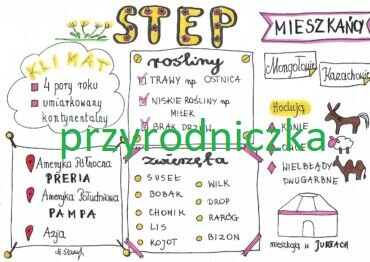 STEP
KLIMAT
4 pory roku
umiarkowany
kontynentalny
rośliny
TRAWY np. OSTNICA
NISKIE ROŚLINY np.
MIŁEK
BRAK DRZEW
MIESZKAŃCY
Mongołowie
Kazachowie
Hodują
KONIE
OWCE
WIELBŁĄDY
DWUGARBNE
mieszkają w JURTACH
przyrodniczka
Ameryka Północna
PRERIA
Ameryka Południowa
PAMPA
Azja
zwierzęta
SUSEŁ
BOBAK
CHOMIK
LIS
KOJOT
WILK
DROP
RARÓG
BIZON